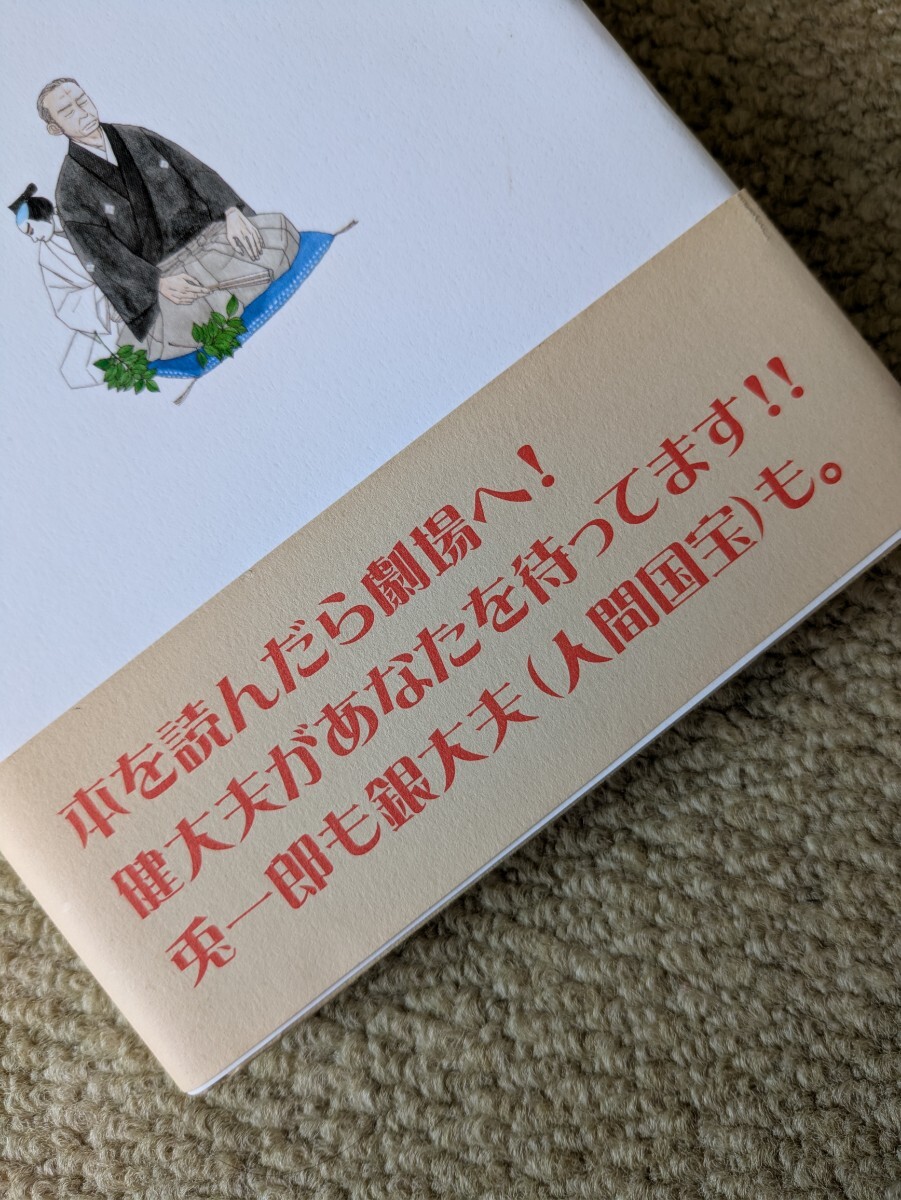 本を読んだら劇場へ！
健大夫があなたを待ってます！！
兎一郎も銀大夫（人間国宝）も。